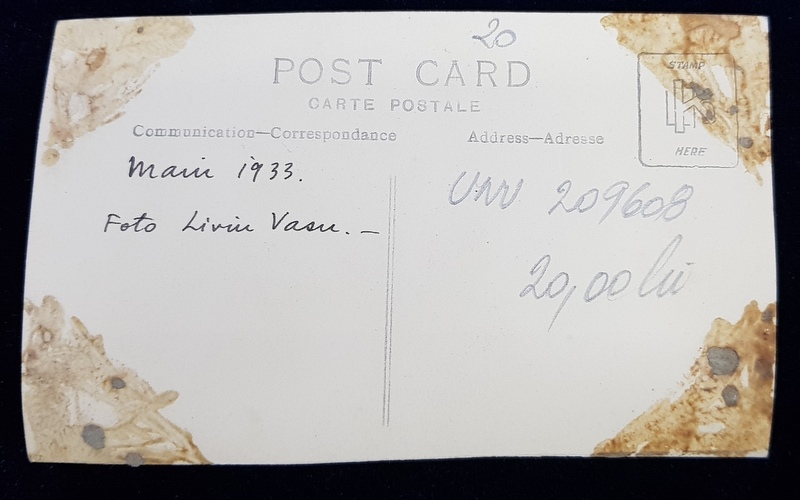 20
POST CARD
CARTE POSTALE
Communication—Correspondance
Address—Adresse
STAMP
HERE
1933.
Foto Liviu Vasu. —
209608
20,00 lei